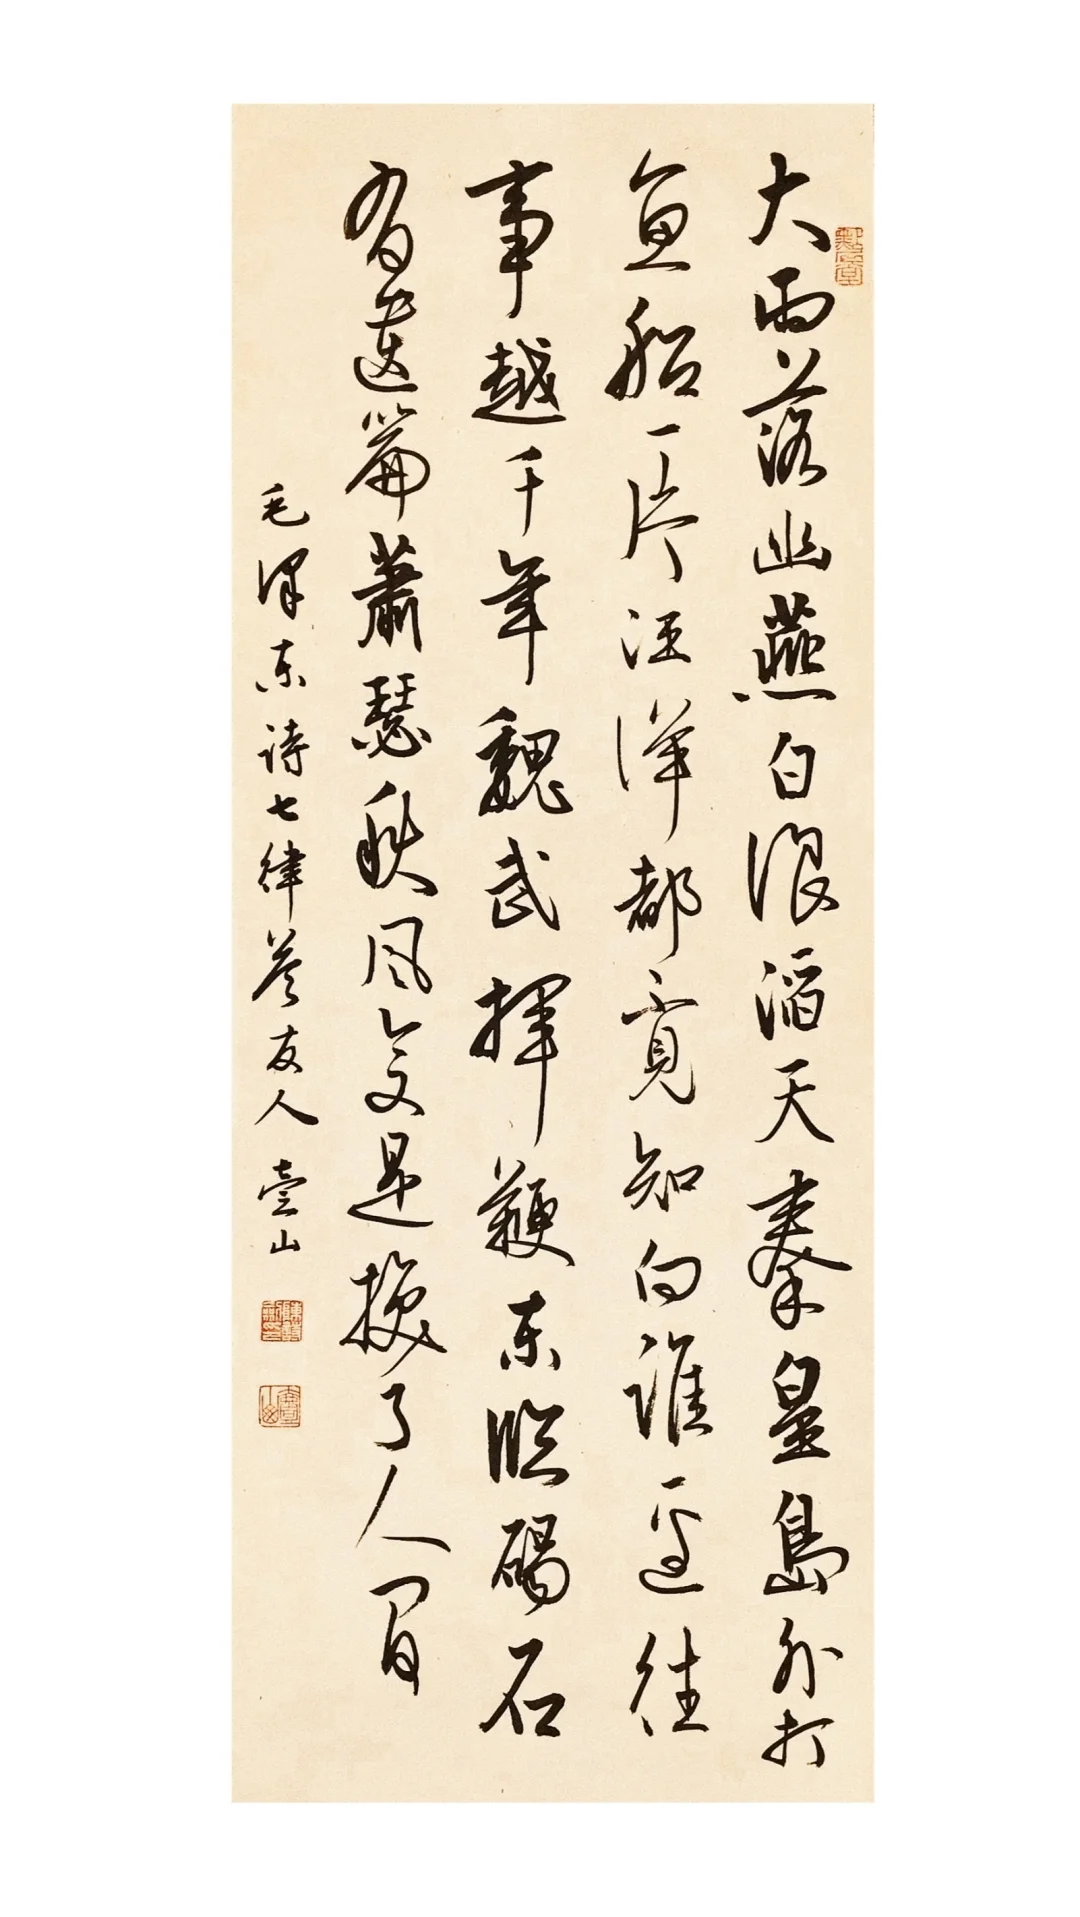 大雨落幽燕白浪滔天秦皇島外打
魚船一片汪洋都不見知向誰邊往
事越千年魏武揮鞭東臨碣石
有遺篇蕭瑟秋風今又是換了人間
毛澤東诗七律答友人 壹山